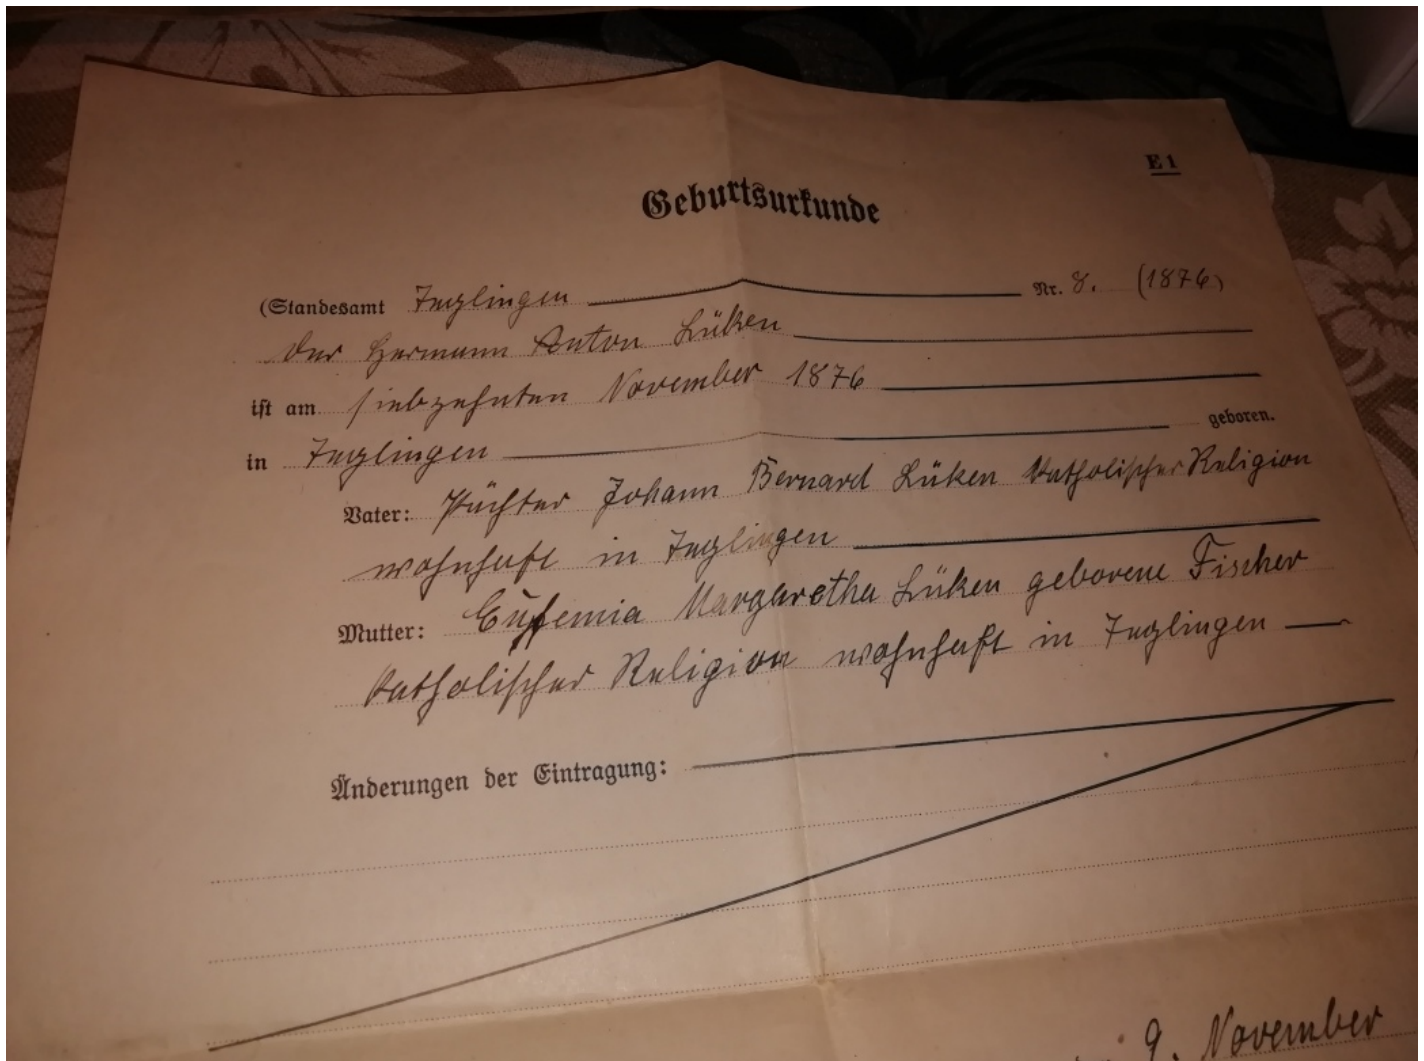 E 1
Geburtsurkunde
(Standesamt Teglingen Nr. 8. (1876)
Der Hermann Anton Lüken
ist am siebzehnten November 1876
in Teglingen geboren.
Vater: Pächter Johann Bernard Lüken katholischer Religion
wohnhaft in Teglingen
Mutter: Eufemia Margaretha Lüken geborene Fischer
katholischer Religion wohnhaft in Teglingen
Änderungen der Eintragung:
9. November